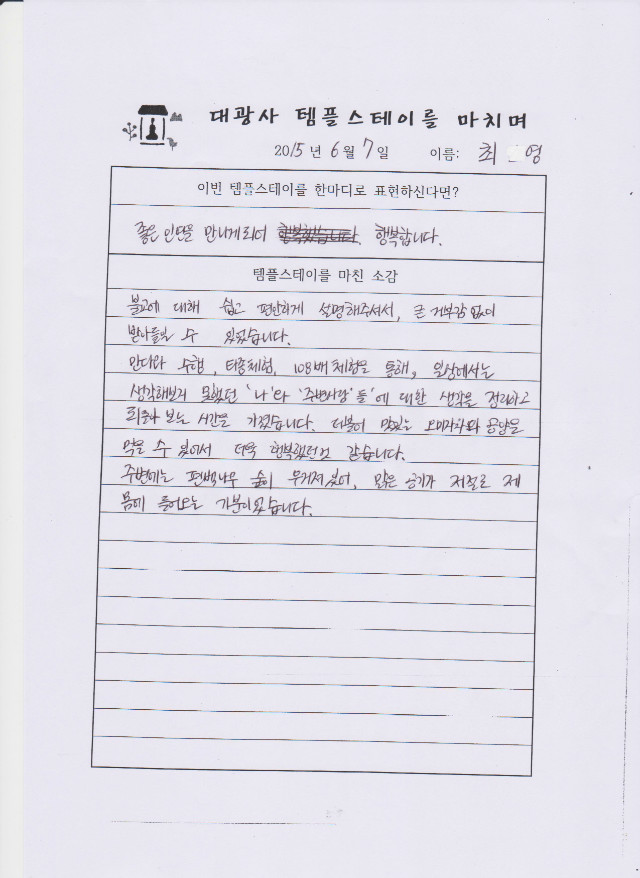 대광사 템플스테이를 마치며
2015년 6월 7일 이름: 최 영
이번 템플스테이를 한마디로 표현하신다면?
좋은 인연을 만나게되어 행복했습니다. 행복합니다.
템플스테이를 마친 소감
불교에 대해 쉽고 편안하게 설명해주셔서, 큰 거부감 없이
받아들일 수 있었습니다.
만다라 수행, 타종체험, 108배 체험을 통해, 일상에서는
생각해보지 못했던 '나'와 '주변사람'들'에 대한 생각을 정리하고
되돌아 보는 시간을 가졌습니다. 더불어 맛있는 오미자차와 공양을
먹을 수 있어서 더욱 행복했던것 같습니다.
주변에는 편백나무 숲이 우거져있어, 맑은 공기가 저절로 제
몸에 들어오는 기분이었습니다.